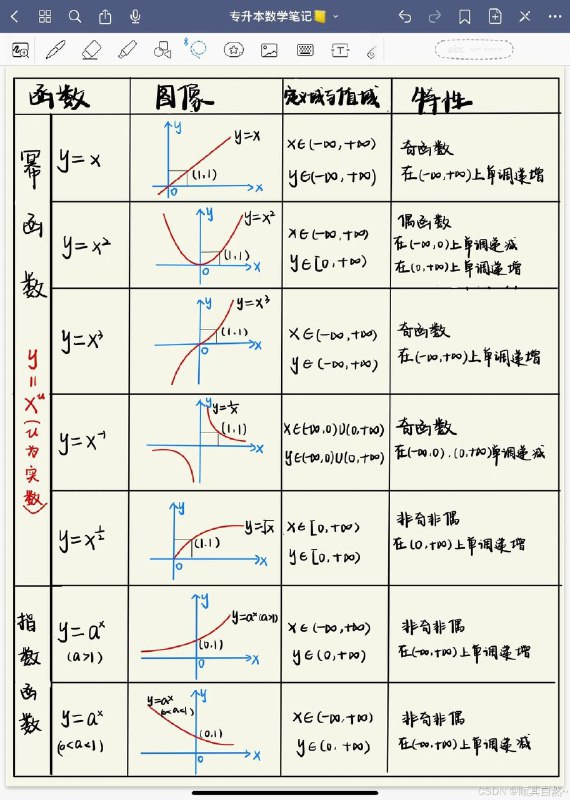 专升本数学笔记
函数 图像 定义域与值域 特性
幂函数 y=x^u (u为实数)
y=x
y
y=x
(1,1)
0
x
x∈(-∞,+∞)
y∈(-∞,+∞)
奇函数
在(-∞,+∞)上单调递增
y=x²
y
y=x²
(1,1)
0
x
x∈(-∞,+∞)
y∈[0,+∞)
偶函数
在(-∞,0)上单调递减
在(0,+∞)上单调递增
y=x³
y
y=x³
(1,1)
0
x
x∈(-∞,+∞)
y∈(-∞,+∞)
奇函数
在(-∞,+∞)上单调递增
y=x⁻¹
y
y=1/x
(1,1)
0
x
x∈(-∞,0)∪(0,+∞)
y∈(-∞,0)∪(0,+∞)
奇函数
在(-∞,0),(0,+∞)单调递减
y=x^(1/2)
y
y=√x
(1,1)
0
x
x∈[0,+∞)
y∈[0,+∞)
非奇非偶
在(0,+∞)上单调递增
指数函数
y=aˣ
(a>1)
y
y=aˣ(a>1)
(0,1)
0
x
x∈(-∞,+∞)
y∈(0,+∞)
非奇非偶
在(-∞,+∞)上单调递增
y=aˣ
(0<a<1)
y=aˣ
(0<a<1)
y
(0,1)
0
x
x∈(-∞,+∞)
y∈(0,+∞)
非奇非偶
在(-∞,+∞)上单调递减
CSDN @顺其自然~